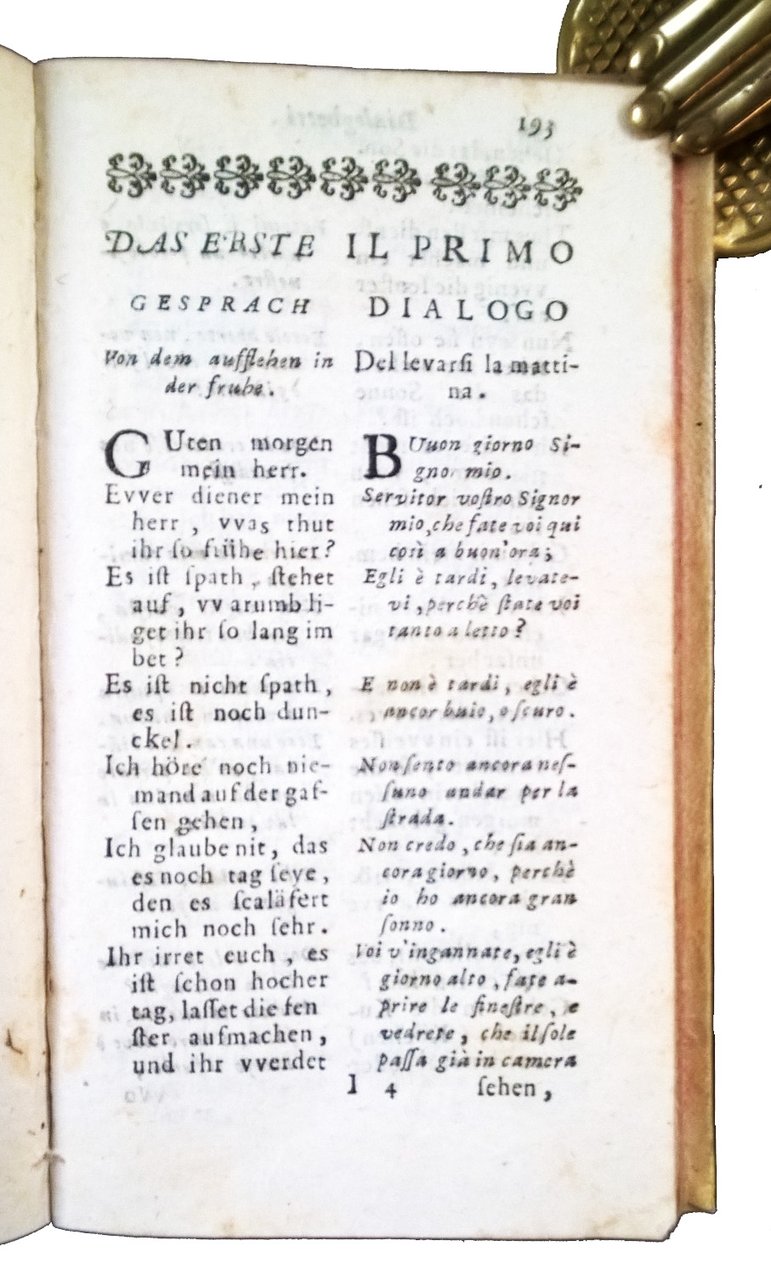 193
DAS ERSTE
GESPRACH
Von dem aufſtehen in
der fruhe.
GUten morgen
mein herr.
Evver diener mein
herr, vvas thut
ihr ſo frühe hier?
Es iſt ſpath, ſtehet
auf, vvarumb li-
get ihr ſo lang im
bet?
Es iſt nicht ſpath,
es iſt noch dun-
ckel.
Ich höre noch nie-
mand auf der gaſ-
ſen gehen,
Ich glaube nit, das
es noch tag ſeye,
den es ſcaläfert
mich noch ſehr.
Ihr irret euch, es
iſt ſchon hocher
tag, laſſet die fen
ſter aufmachen,
und ihr vverdet
IL PRIMO
DIALOGO
Del levarſi la matti-
na.
BUuon giorno Si-
gno mio.
Servitor voſtro Signor
mio, che fate voi qui
così a buon'ora;
Egli è tardi, levate-
vi, perchè ſtate voi
tanto a letto?
E non è tardi, egli è
ancor buio, oſcuro.
Non ſento ancora neſ-
ſuno andar per la
ſtrada.
Non credo, che ſia an-
cora giorno, perchè
io ho ancora gran
ſonno.
Voi v'ingannate, egli è
giorno alto, fate a-
prire le fineſtre, e
vedrete, che il ſole
paſſa già in camera
I 4 ſehen,